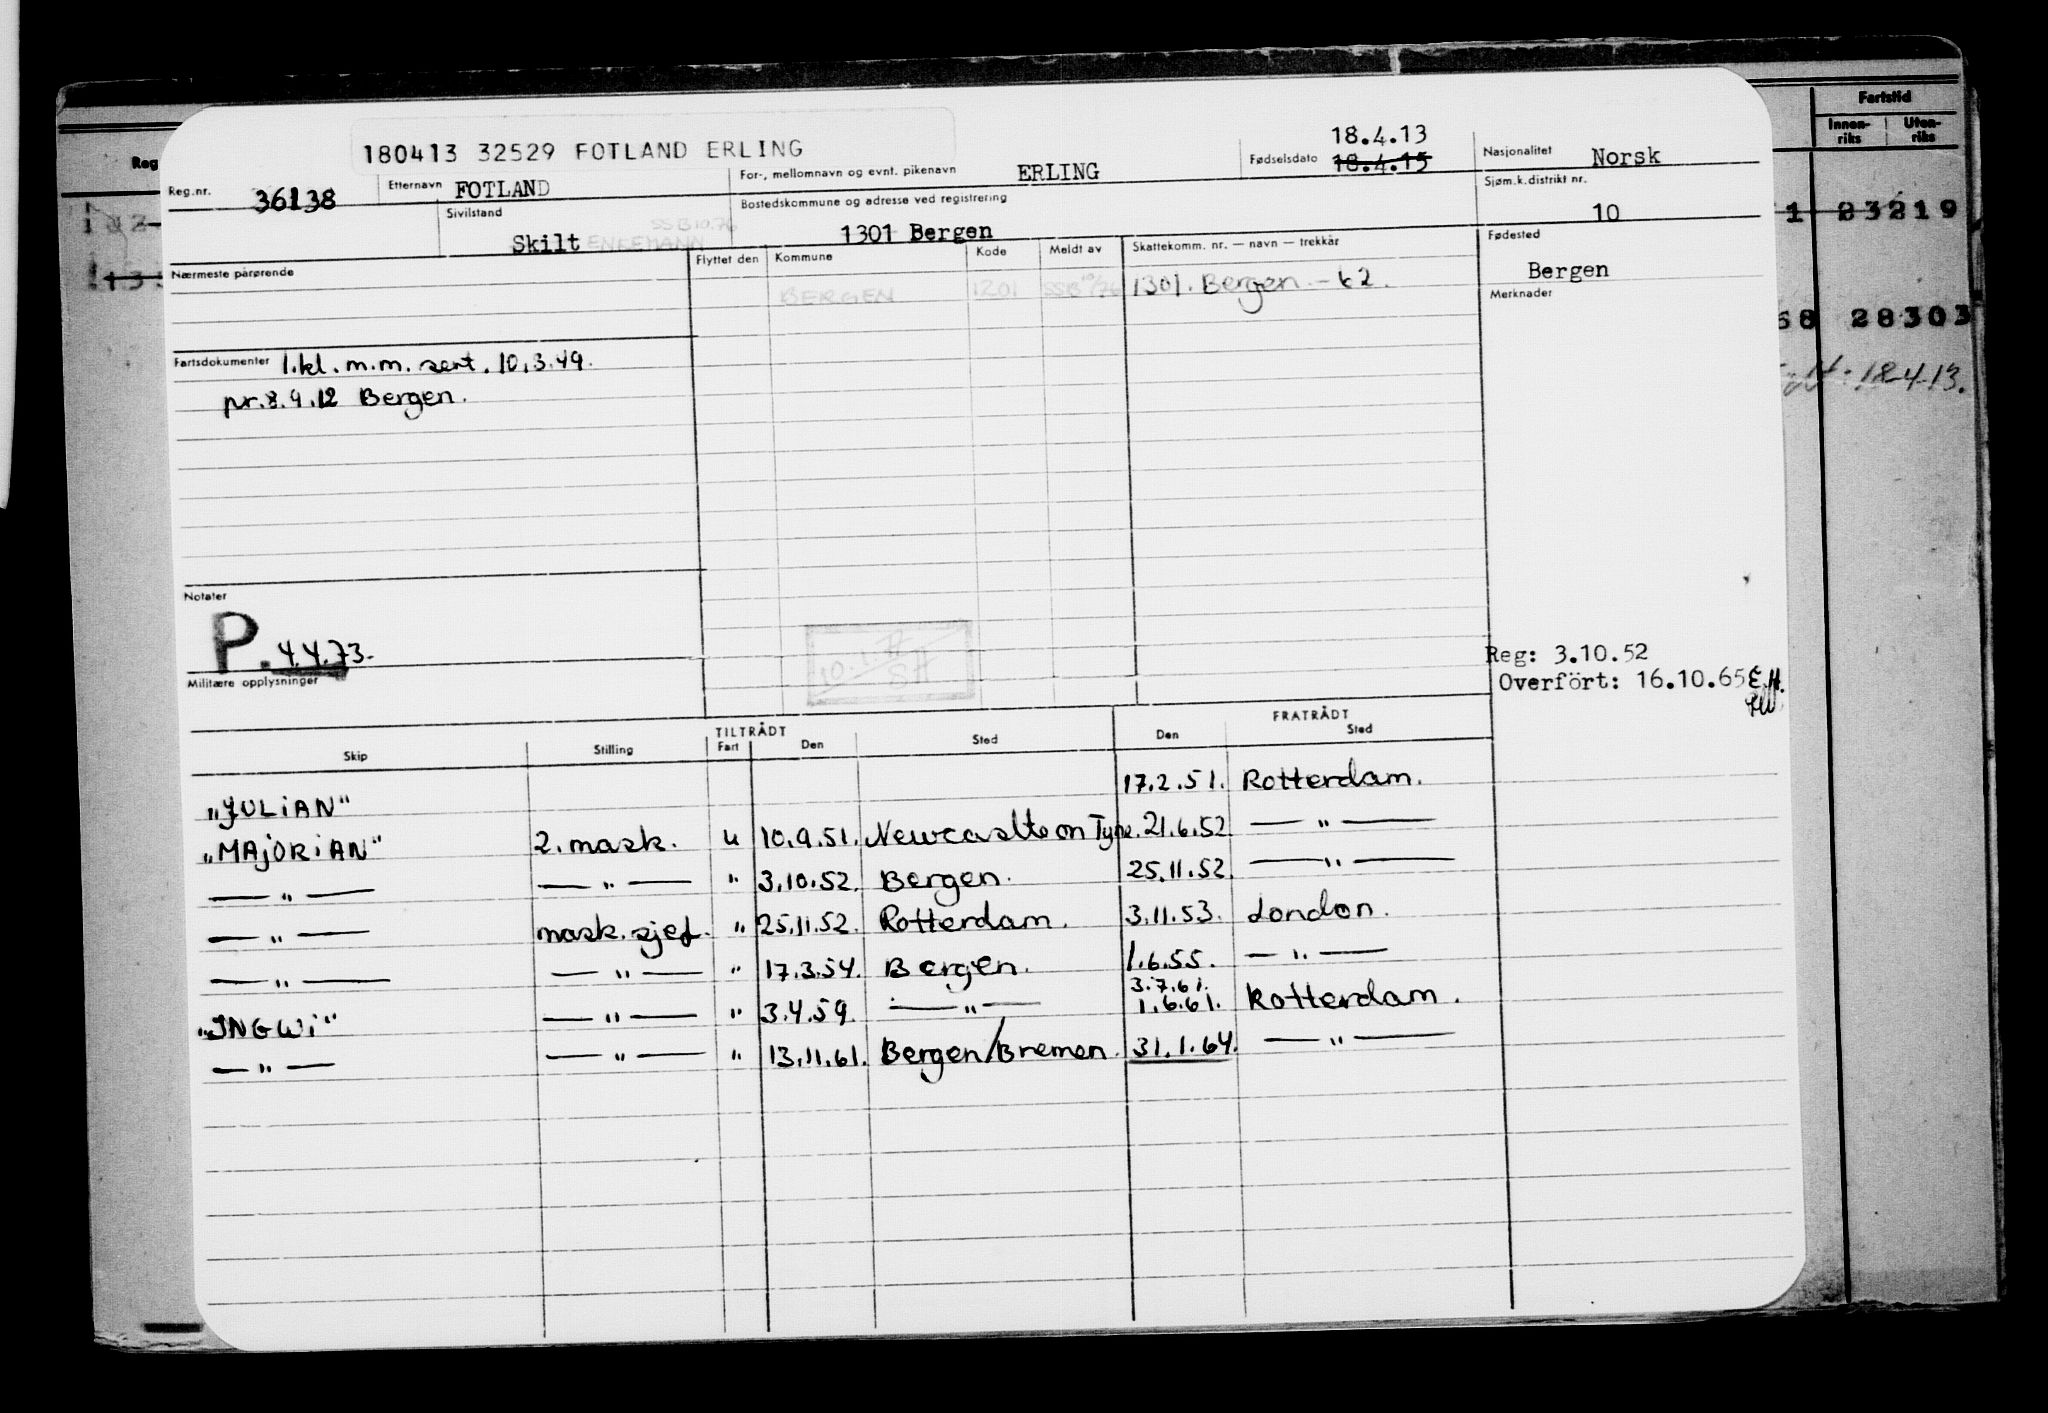 Fartstid
Innen-riks Uten-riks
Reg
180413 32529 FOTLAND ERLING
Reg.nr. 36138
Etternavn FOTLAND
For-, mellomnavn og evnt. pikenavn ERLING
Fødselsdato 18.4.13
18.4.15
Nasjonalitet Norsk
Sivilstand Skilt ENKEMANN SSB 10.76
Bostedskommune og adresse ved registrering
1301 Bergen
Sjøm.k.distrikt nr.
10
1 23219
Nærmeste pårørende
Flyttet den Kommune Kode Meldt av Skattekomm. nr. — navn — trekkår
BERGEN 1201 SSB 10/76 1301. Bergen. - 62.
Fødested
Bergen
Merknader
68 28303
18-4-13.
Fartsdokumenter 1.kl. m.m. sert. 10.3.49.
pr. 8.9.12 Bergen.
Notater
P. 4.4.73.
Militære opplysninger
Reg: 3.10.52
Overført: 16.10.65 E.H.
TILTRÅDT FRATRÅDT
Skip Stilling Fart Den Sted Den Sted
"JULIAN" 17.2.51. Rotterdam.
"MAJORIAN" 2. mask. u 10.9.51. Newcastle on Tyne. 21.6.52 — " —
— " — — " — " 3.10.52. Bergen. 25.11.52. — " —
— " — mask.sjef. " 25.11.52. Rotterdam. 3.11.53. London.
— " — — " — " 17.3.54. Bergen. 1.6.55. — " —
3.7.61.
"INGWI" — " — " 3.4.59. — " — 1.6.61. Rotterdam.
— " — — " — " 13.11.61. Bergen/Bremen. 31.1.64. — " —